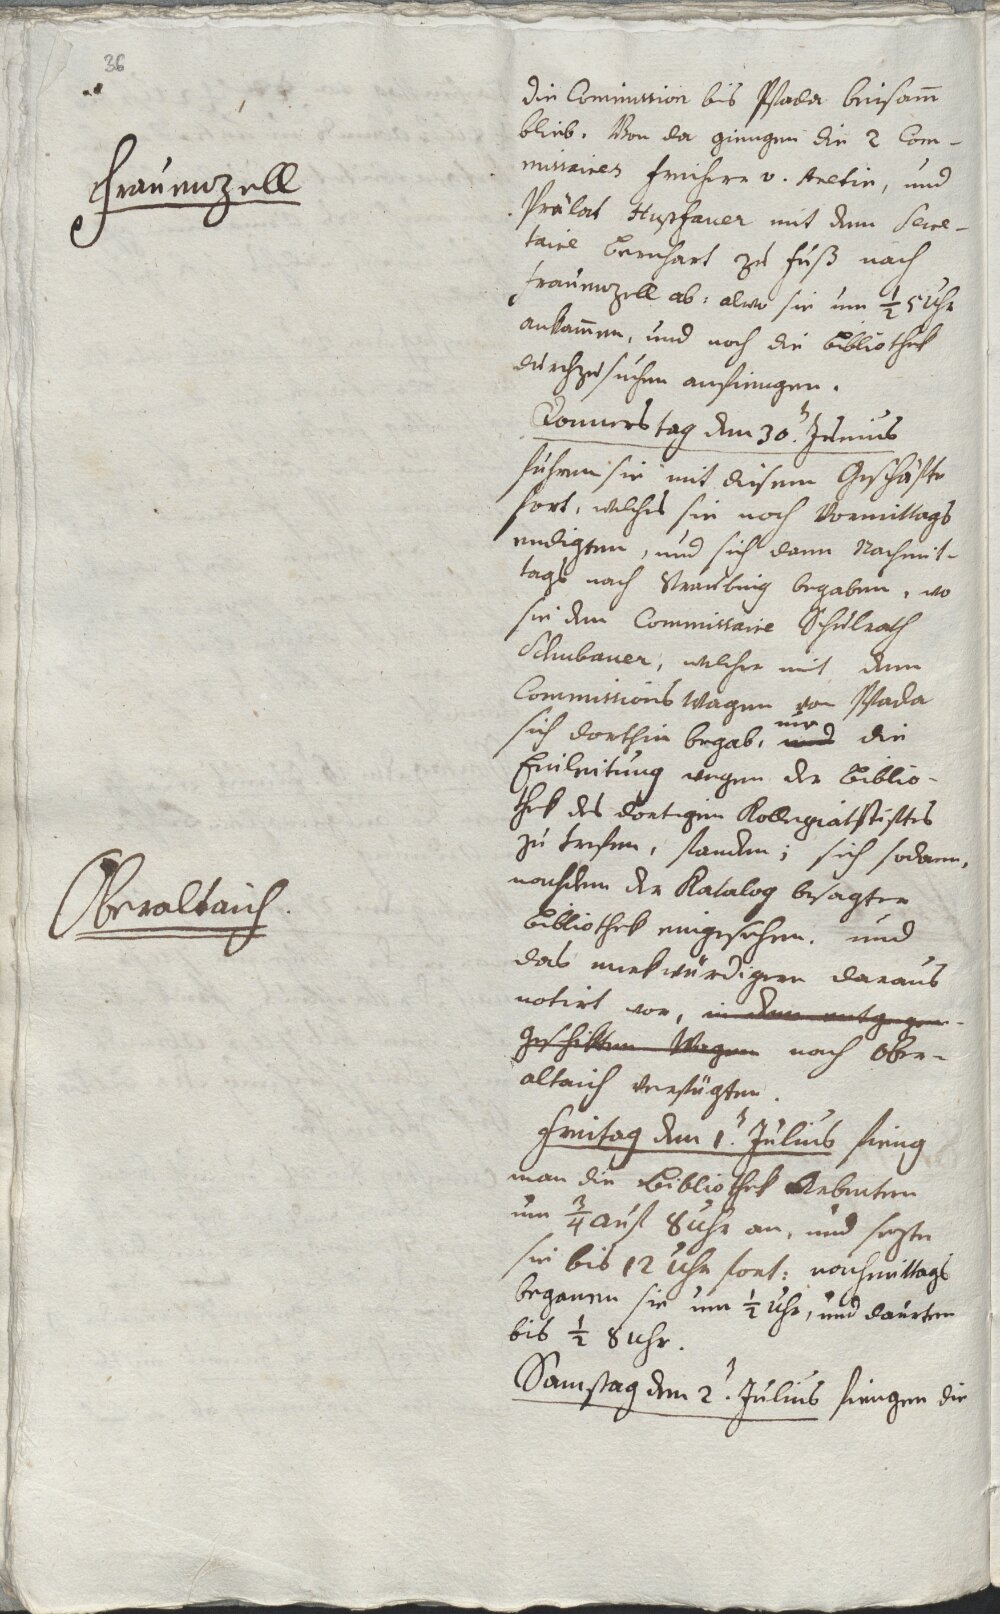 36
Frauenzell
die Commission bis Pfada beisam̄
blieb. Von da giengen die 2 Com-
missaires Freiherr v. Aretin, und
Prälat Hupfauer mit dem Secre-
taire Bernhart zu Fuß nach
Frauenzell ab: alwo sie um ½ 5 Uhr
ankam̄en, und noch die Bibliothek
durchzusuchen anfiengen.
Donnerstag den 30. Junius
fuhren sie mit diesem Geschäfte
fort, welches sie noch Vormittags
endigten, und sich dann Nachmit-
tags nach Straubing begaben, wo
sie den Commissaire Schulrath
Schubauer, welcher mit dem
Commissions Wagen von Pfada
sich dorthin begab, und nur die
Einleitung wegen der Biblio-
thek des dortigen Kollegiatstiftes
zu trefen, fanden; sich sodann,
nachdem der Katalog besagter
Bibliothek eingesehen, und
das merkwürdigere daraus
notirt war, in dem entgegen-
geschikten Wagen nach Ober-
altaich verfügten.
Oberaltaich.
Freitag den 1. Julius fieng
man die Bibliothek Arbeiten
um ¾ auf 8 Uhr an, und sezte
sie bis 12 Uhr fort: nachmittags
begannen sie um ½ Uhr, und daurten
bis ½ 8 Uhr.
Samstag den 2. Julius fiengen die